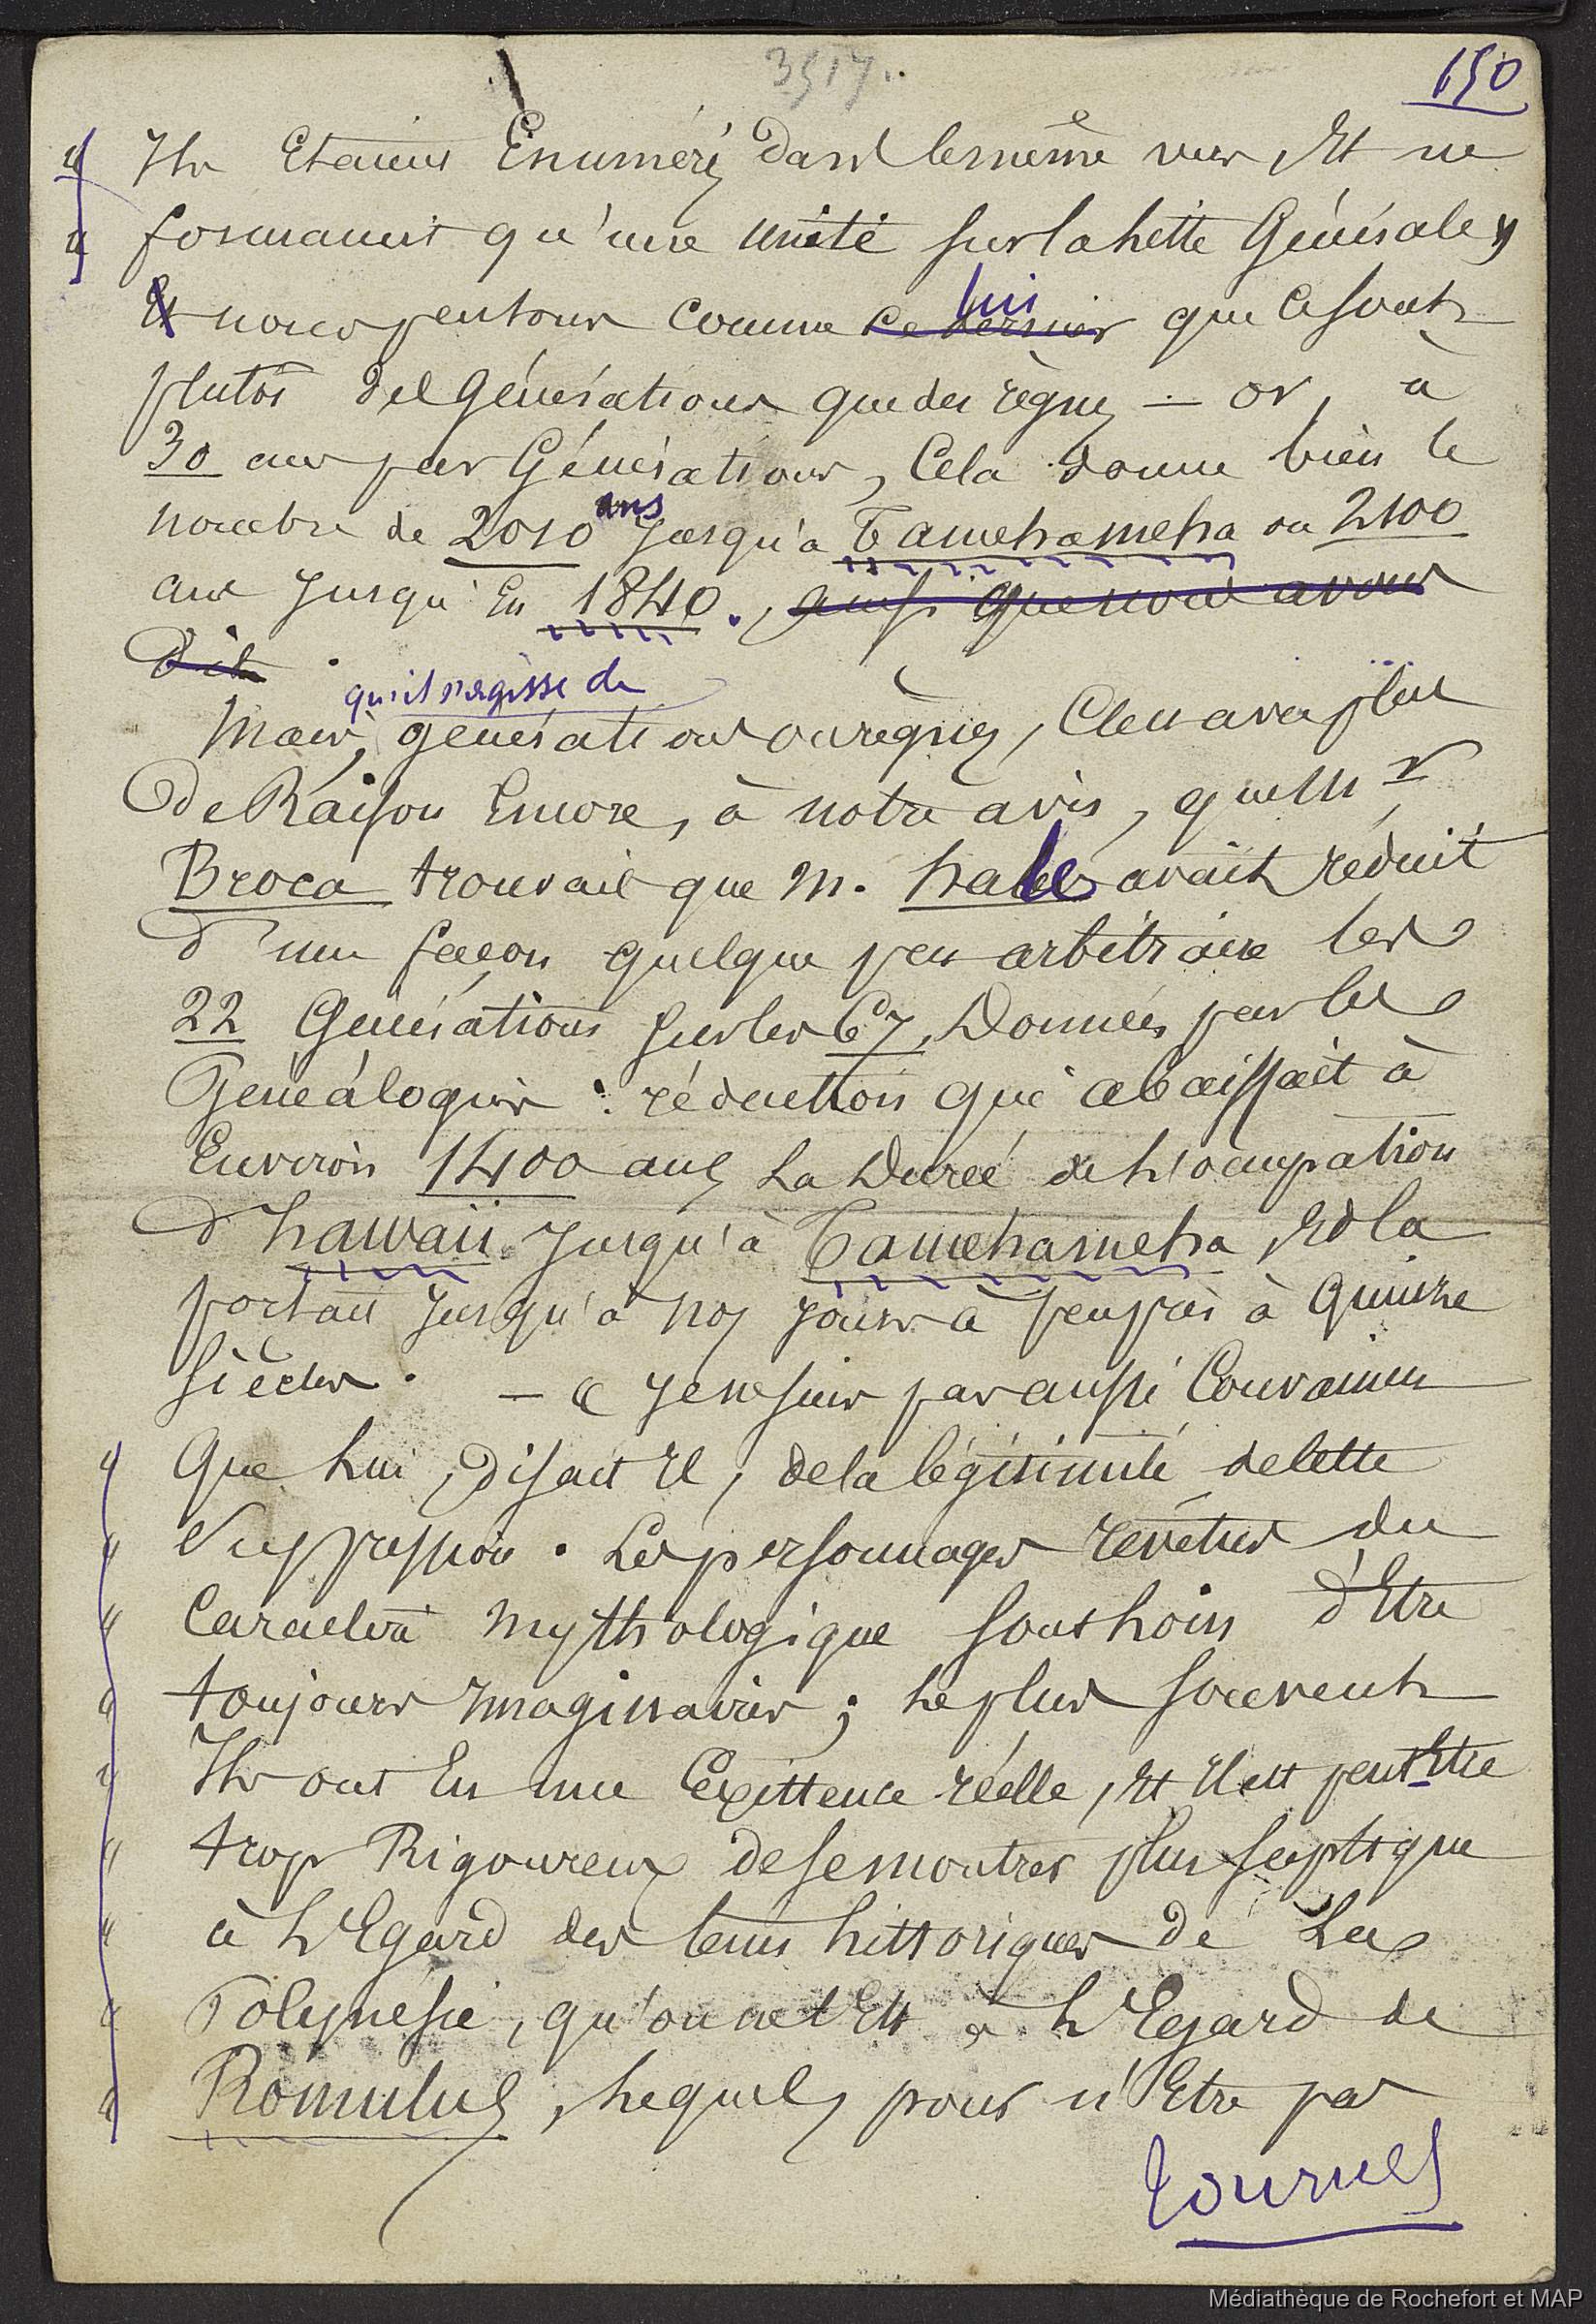 3517..
150
" Ils Etaient Enumérés dans le même vers, Et ne
" formaient qu'une unité sur la liste Générale »
Et nous pensons comme ce dernier lui que ce sont
plutôt des Générations que des règnes — or, à
30 ans par Générations, Cela donne bien le
nombre de 2010 ans jusqu'à Tamehameha ou 2100
ans jusqu'En 1840., ainsi que nous avons
dit.
Mais, qu'il s'agisse de générations ou règnes, C'est avec plus
de Raison Encore, à notre avis, que Mr
Broca trouvait que M. hale avait réduit
d'une façon quelque peu arbitraire les
22 Générations sur les 67, Données par les
Généalogies : réduction qui abaissait à
Environ 1400 ans La Durée de L'occupation
d'hawaii jusqu'à Tamehameha, Et la
portait jusqu'à nos jours à peu près à Quinze
Siècles. — « Je ne suis pas aussi Convaincu
" Que lui, disait Il, de la légitimité de cette
" Suppression. Les personnages revêtus du
" Caractère Mythologique sont loin d'Etre
" toujours Imaginaires ; Le plus souvent
" Ils ont Eu une Existence réelle, Et Il est peut Etre
" trop Rigoureux de se montrer plus sceptique
" à L'Egard des tems historiques de La
" Polynésie, qu'on ne l'Est à L'Egard de
" Romulus, Lequel, pour n'Etre pas
tournez
Médiathèque de Rochefort et MAP